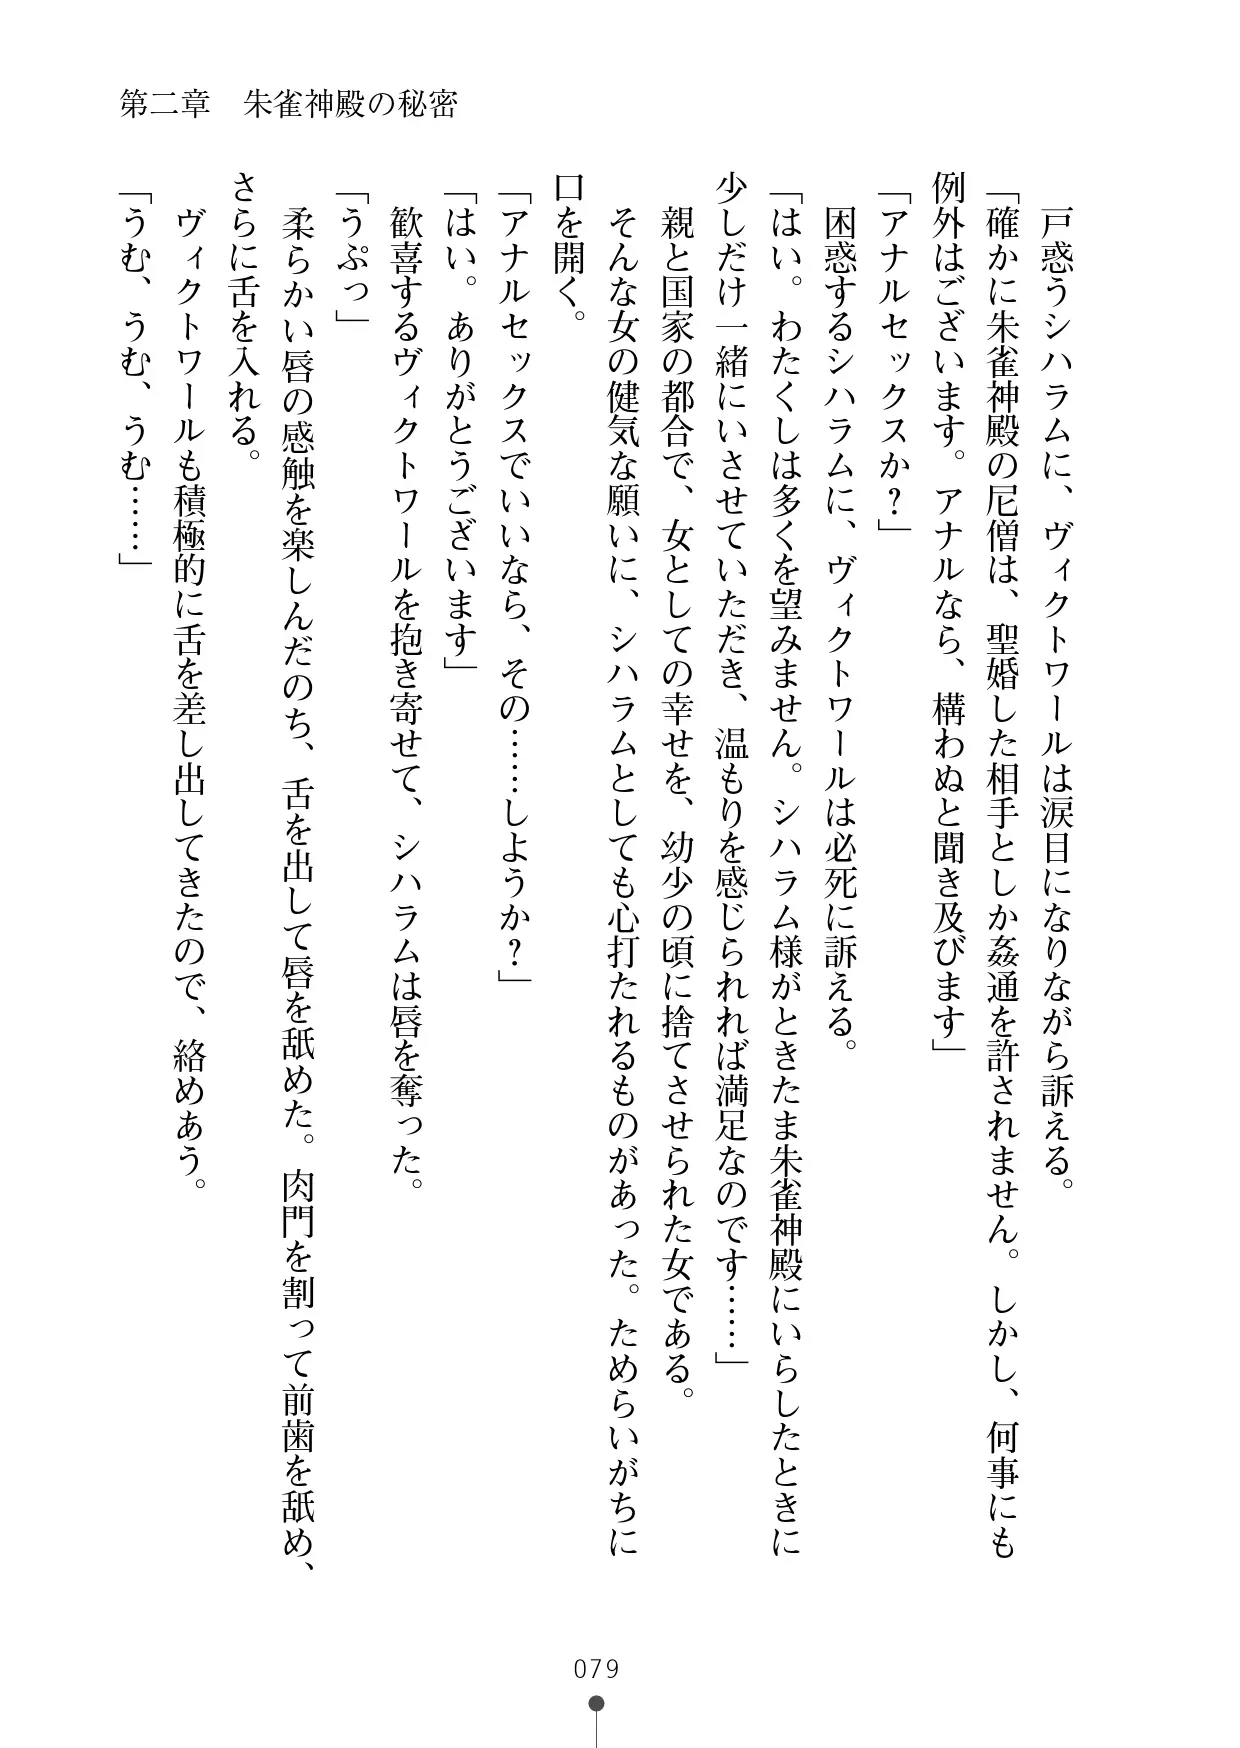 第二章　朱雀神殿の秘密
　戸惑うシハラムに、ヴィクトワールは涙目になりながら訴える。
「確かに朱雀神殿の尼僧は、聖婚した相手としか姦通を許されません。しかし、何事にも
例外はございます。アナルなら、構わぬと聞き及びます」
「アナルセックスか？」
　困惑するシハラムに、ヴィクトワールは必死に訴える。
「はい。わたくしは多くを望みません。シハラム様がときたま朱雀神殿にいらしたときに
少しだけ一緒にいさせていただき、温もりを感じられれば満足なのです……」
　親と国家の都合で、女としての幸せを、幼少の頃に捨てさせられた女である。
　そんな女の健気な願いに、シハラムとしても心打たれるものがあった。ためらいがちに
口を開く。
「アナルセックスでいいなら、その……しようか？」
「はい。ありがとうございます」
　歓喜するヴィクトワールを抱き寄せて、シハラムは唇を奪った。
「うぷっ」
　柔らかい唇の感触を楽しんだのち、舌を出して唇を舐めた。肉門を割って前歯を舐め、
さらに舌を入れる。
　ヴィクトワールも積極的に舌を差し出してきたので、絡めあう。
「うむ、うむ、うむ……」
079